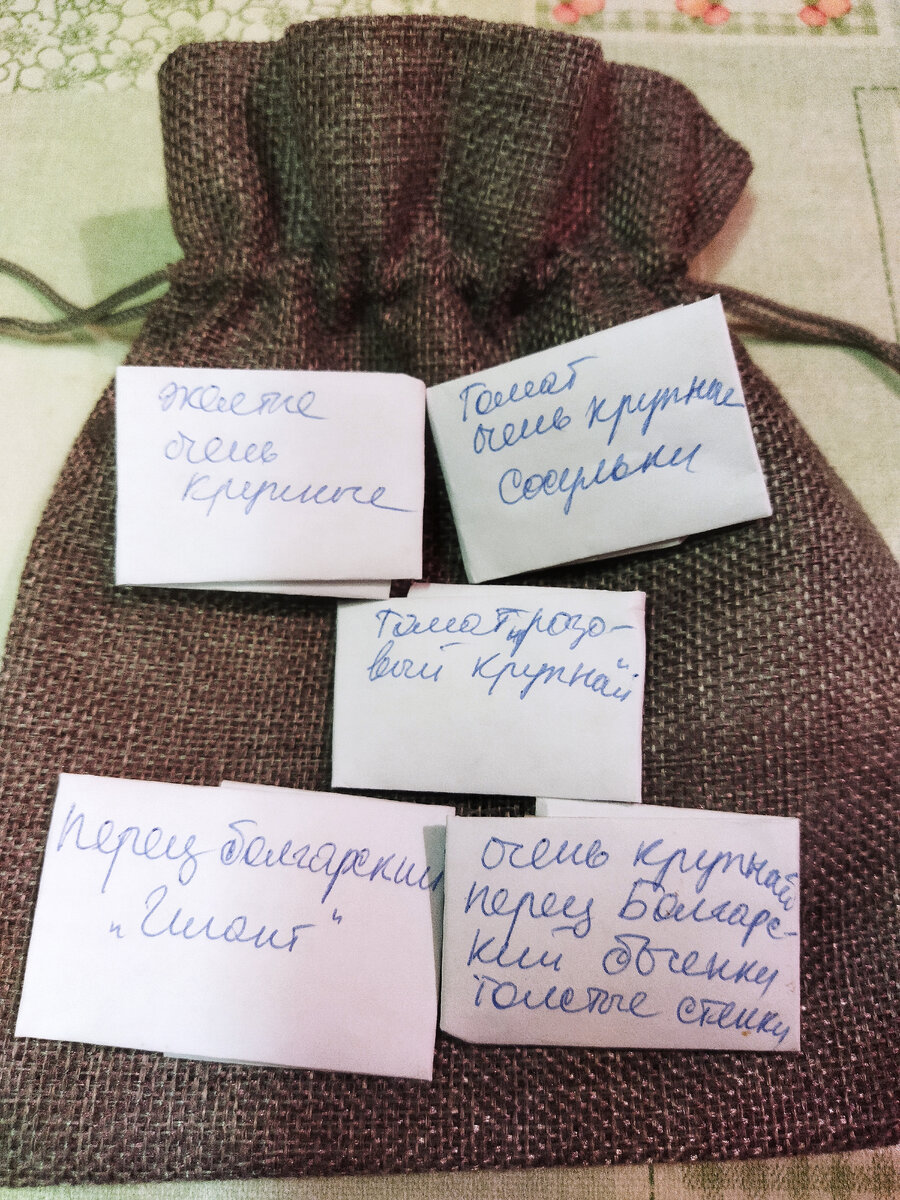 желтые
очень
крупные
Томат
очень крупные
Сосульки
томат розо-
вый крупный
перец болгарский
"Гигант"
очень крупный
перец Болгарс-
кий бченки
толстые стенки